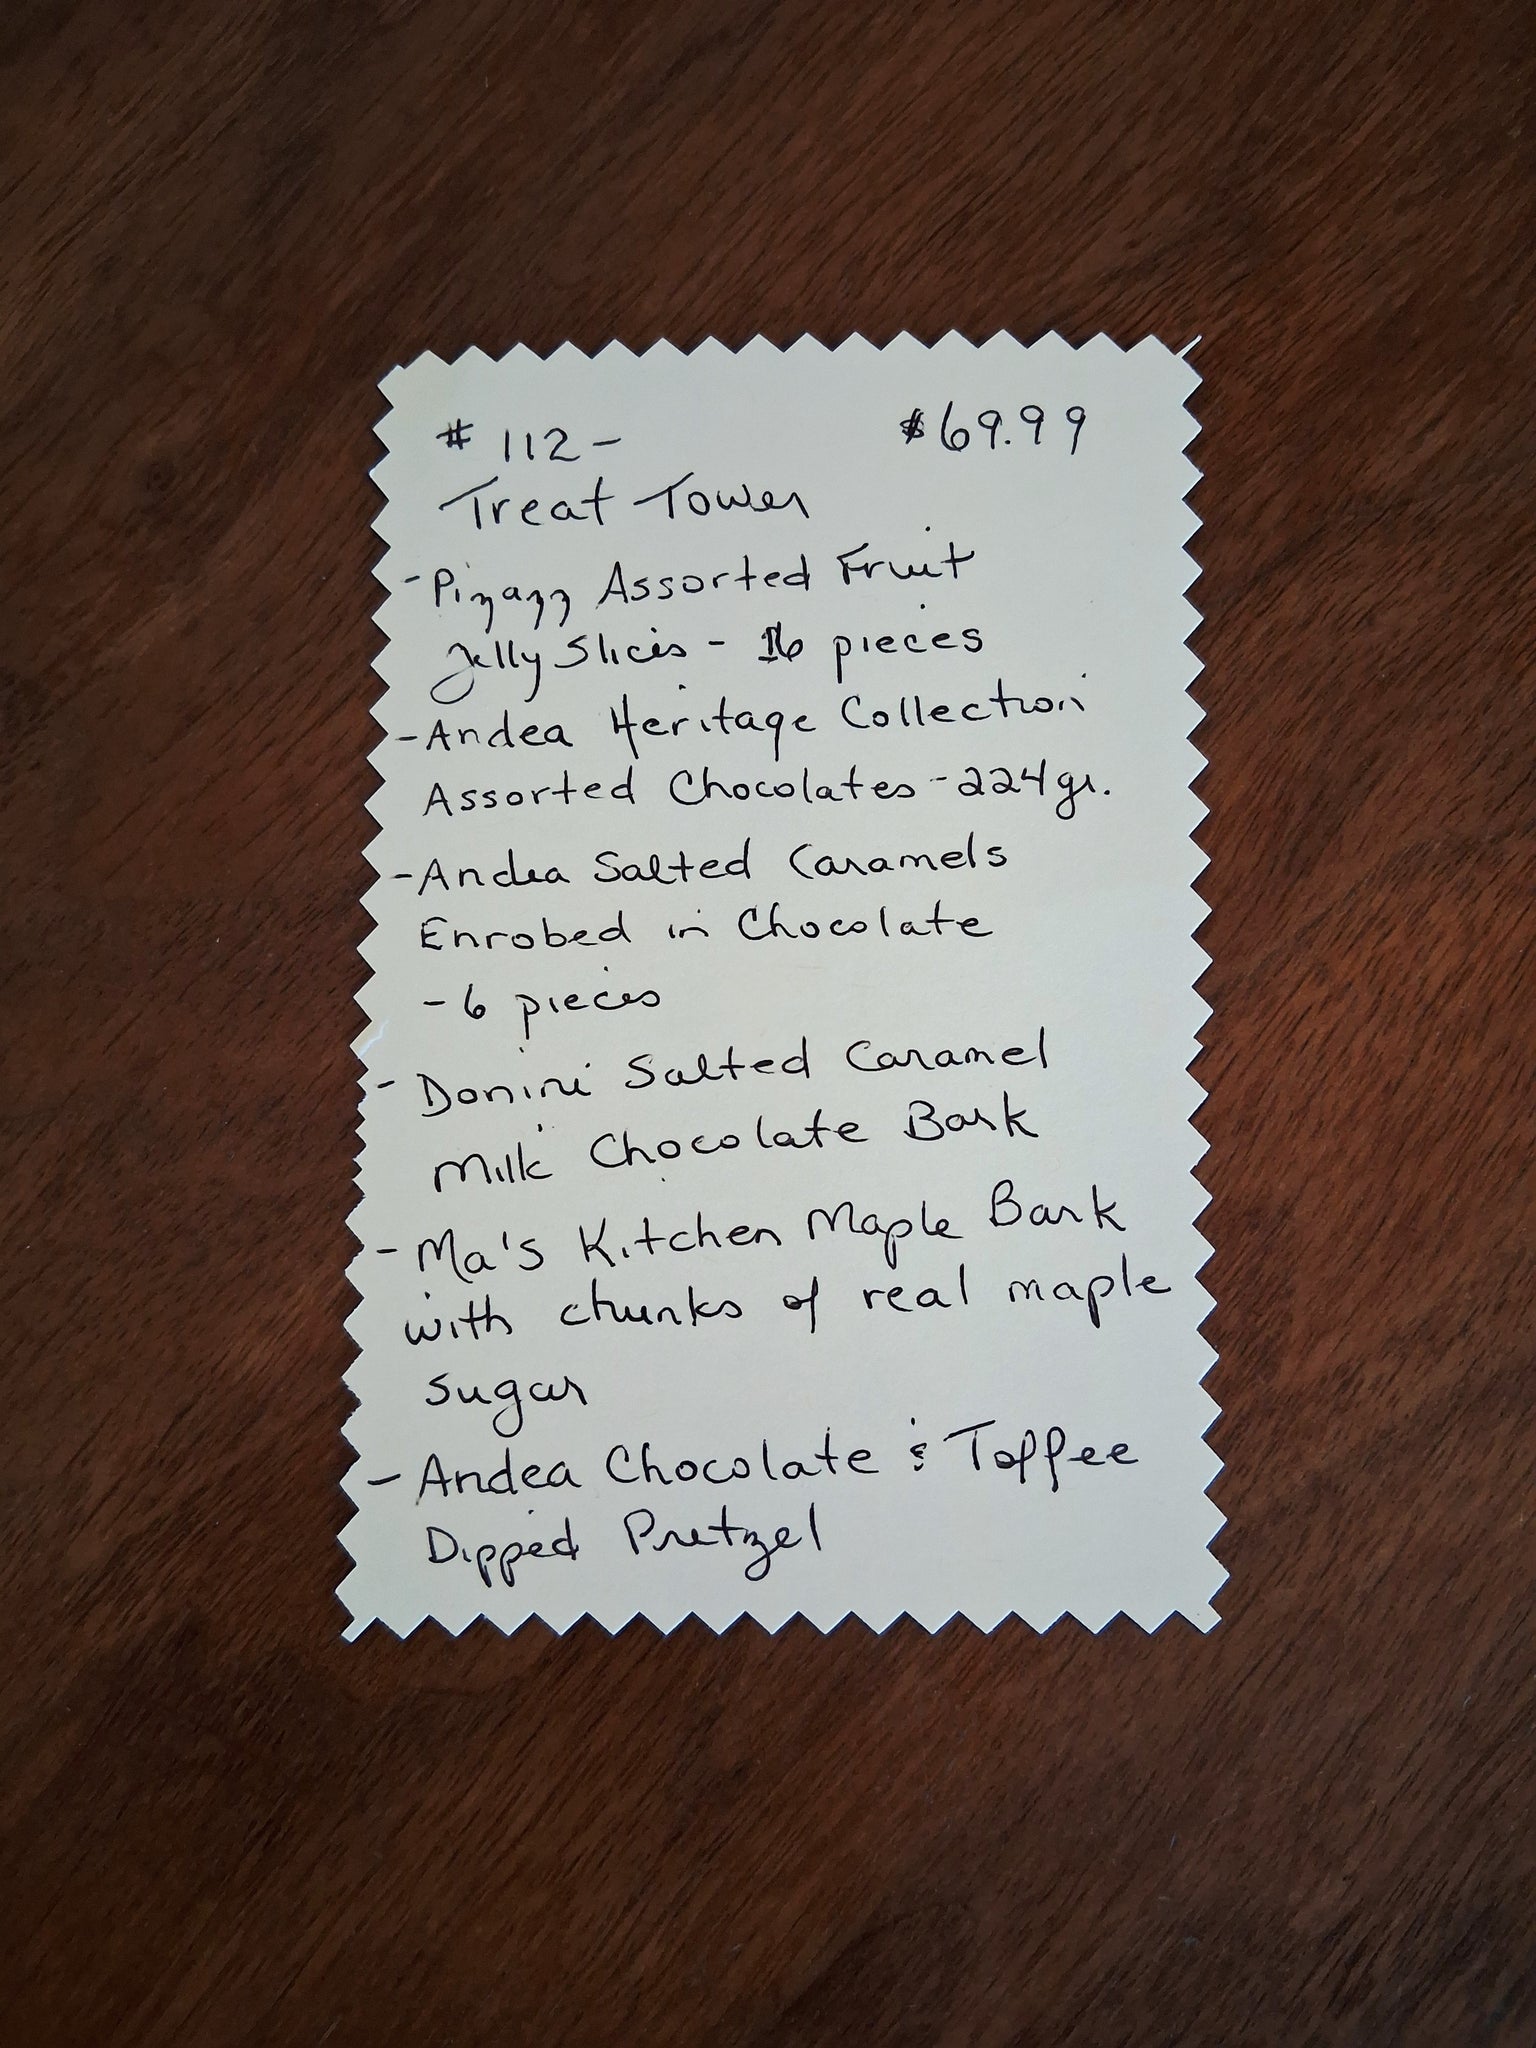 # 112 - $69.99
Treat Tower
- Pizazz Assorted Fruit
Jelly Slices - 16 pieces
- Andea Heritage Collection
Assorted Chocolates - 224gr.
- Andea Salted Caramels
Enrobed in Chocolate
- 6 pieces
- Donini Salted Caramel
Milk Chocolate Bark
- Ma's Kitchen Maple Bark
with chunks of real maple
sugar
- Andea Chocolate & Toffee
Dipped Pretzel